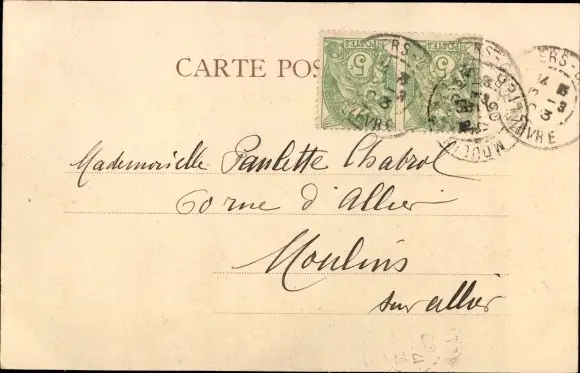 CARTE POS
POSTES 5
POSTES 5
Mademoiselle Paulette Chabrol
60 rue d'Allier
Moulins
sur allier